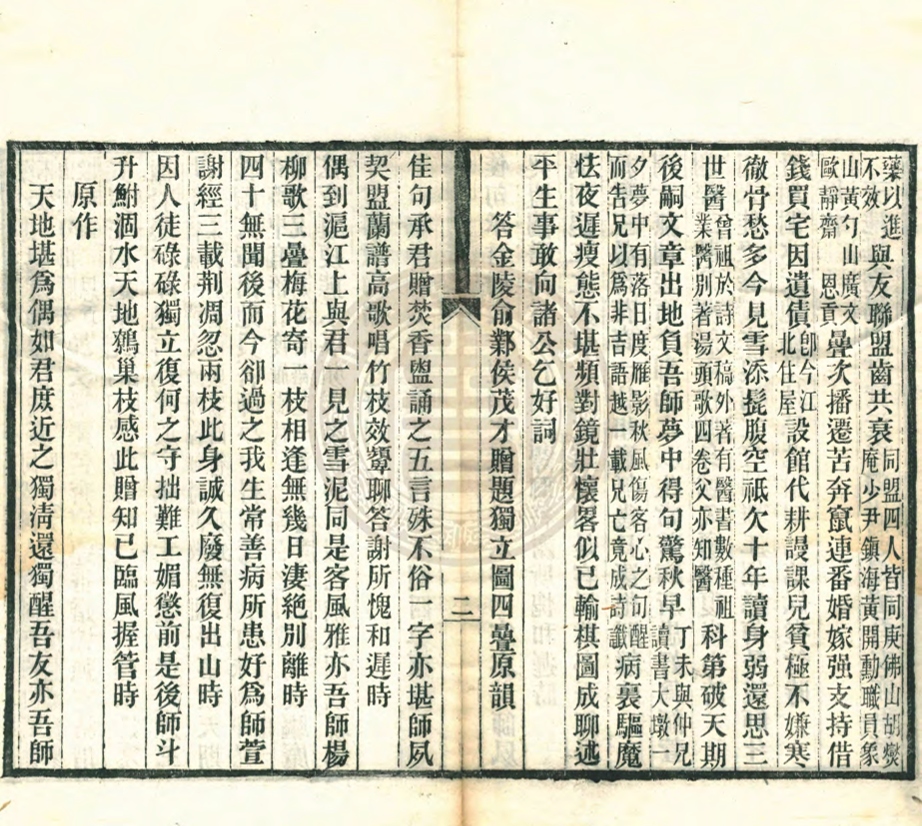 藥以進不效與友聯盟齒共衰同盟四人皆同庚佛山胡爕庵少尹鎮海黃開勳職員象
山黃勺山廣文歐靜齋恩貢疊次播遷苦奔竄連番婚嫁强支持借
錢買宅因遺債卽今江北住屋設館代耕謾課兒貧極不嫌寒
徹骨愁多今見雪添髭腹空祗欠十年讀身弱還思三
世醫曾祖於詩文稿外著有醫書數種祖業醫別著湯頭歌四卷父亦知醫科第破天期
後嗣文章出地負吾師夢中得句驚秋早丁未與仲兄讀書大墩一
夕夢中有落日度雁影秋風傷客心之句醒而吿兄以爲非吉語越一載兄亡竟成詩讖病裏驅魔
怯夜遲瘦態不堪頻對鏡壯懷畧似已輸棋圖成聊述
平生事敢向諸公乞好詞
答金陵俞鄴侯茂才贈題獨立圖四疊原韻
二
佳句承君贈焚香盥誦之五言殊不俗一字亦堪師夙
契盟蘭譜高歌唱竹枝效顰聊答謝所愧和遲時
偶到滬江上與君一見之雪泥同是客風雅亦吾師楊
柳歌三疊梅花寄一枝相逢無幾日淒絕別離時
四十無聞後而今卻過之我生常善病所患好爲師萱
謝經三載荆凋忽兩枝此身誠久廢無復出山時
因人徒碌碌獨立復何之守拙難工媚懲前是後師斗
升鮒涸水天地鷦巢枝感此贈知已臨風握管時
原作
天地堪爲偶如君庶近之獨淸還獨醒吾友亦吾師